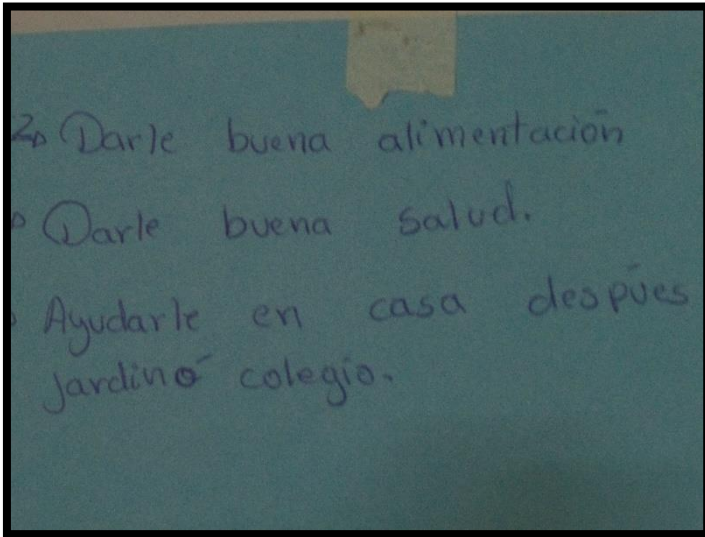 2. Darle buena alimentación
Darle buena salud.
Ayudarle en casa despúes
jardin ó colegio.